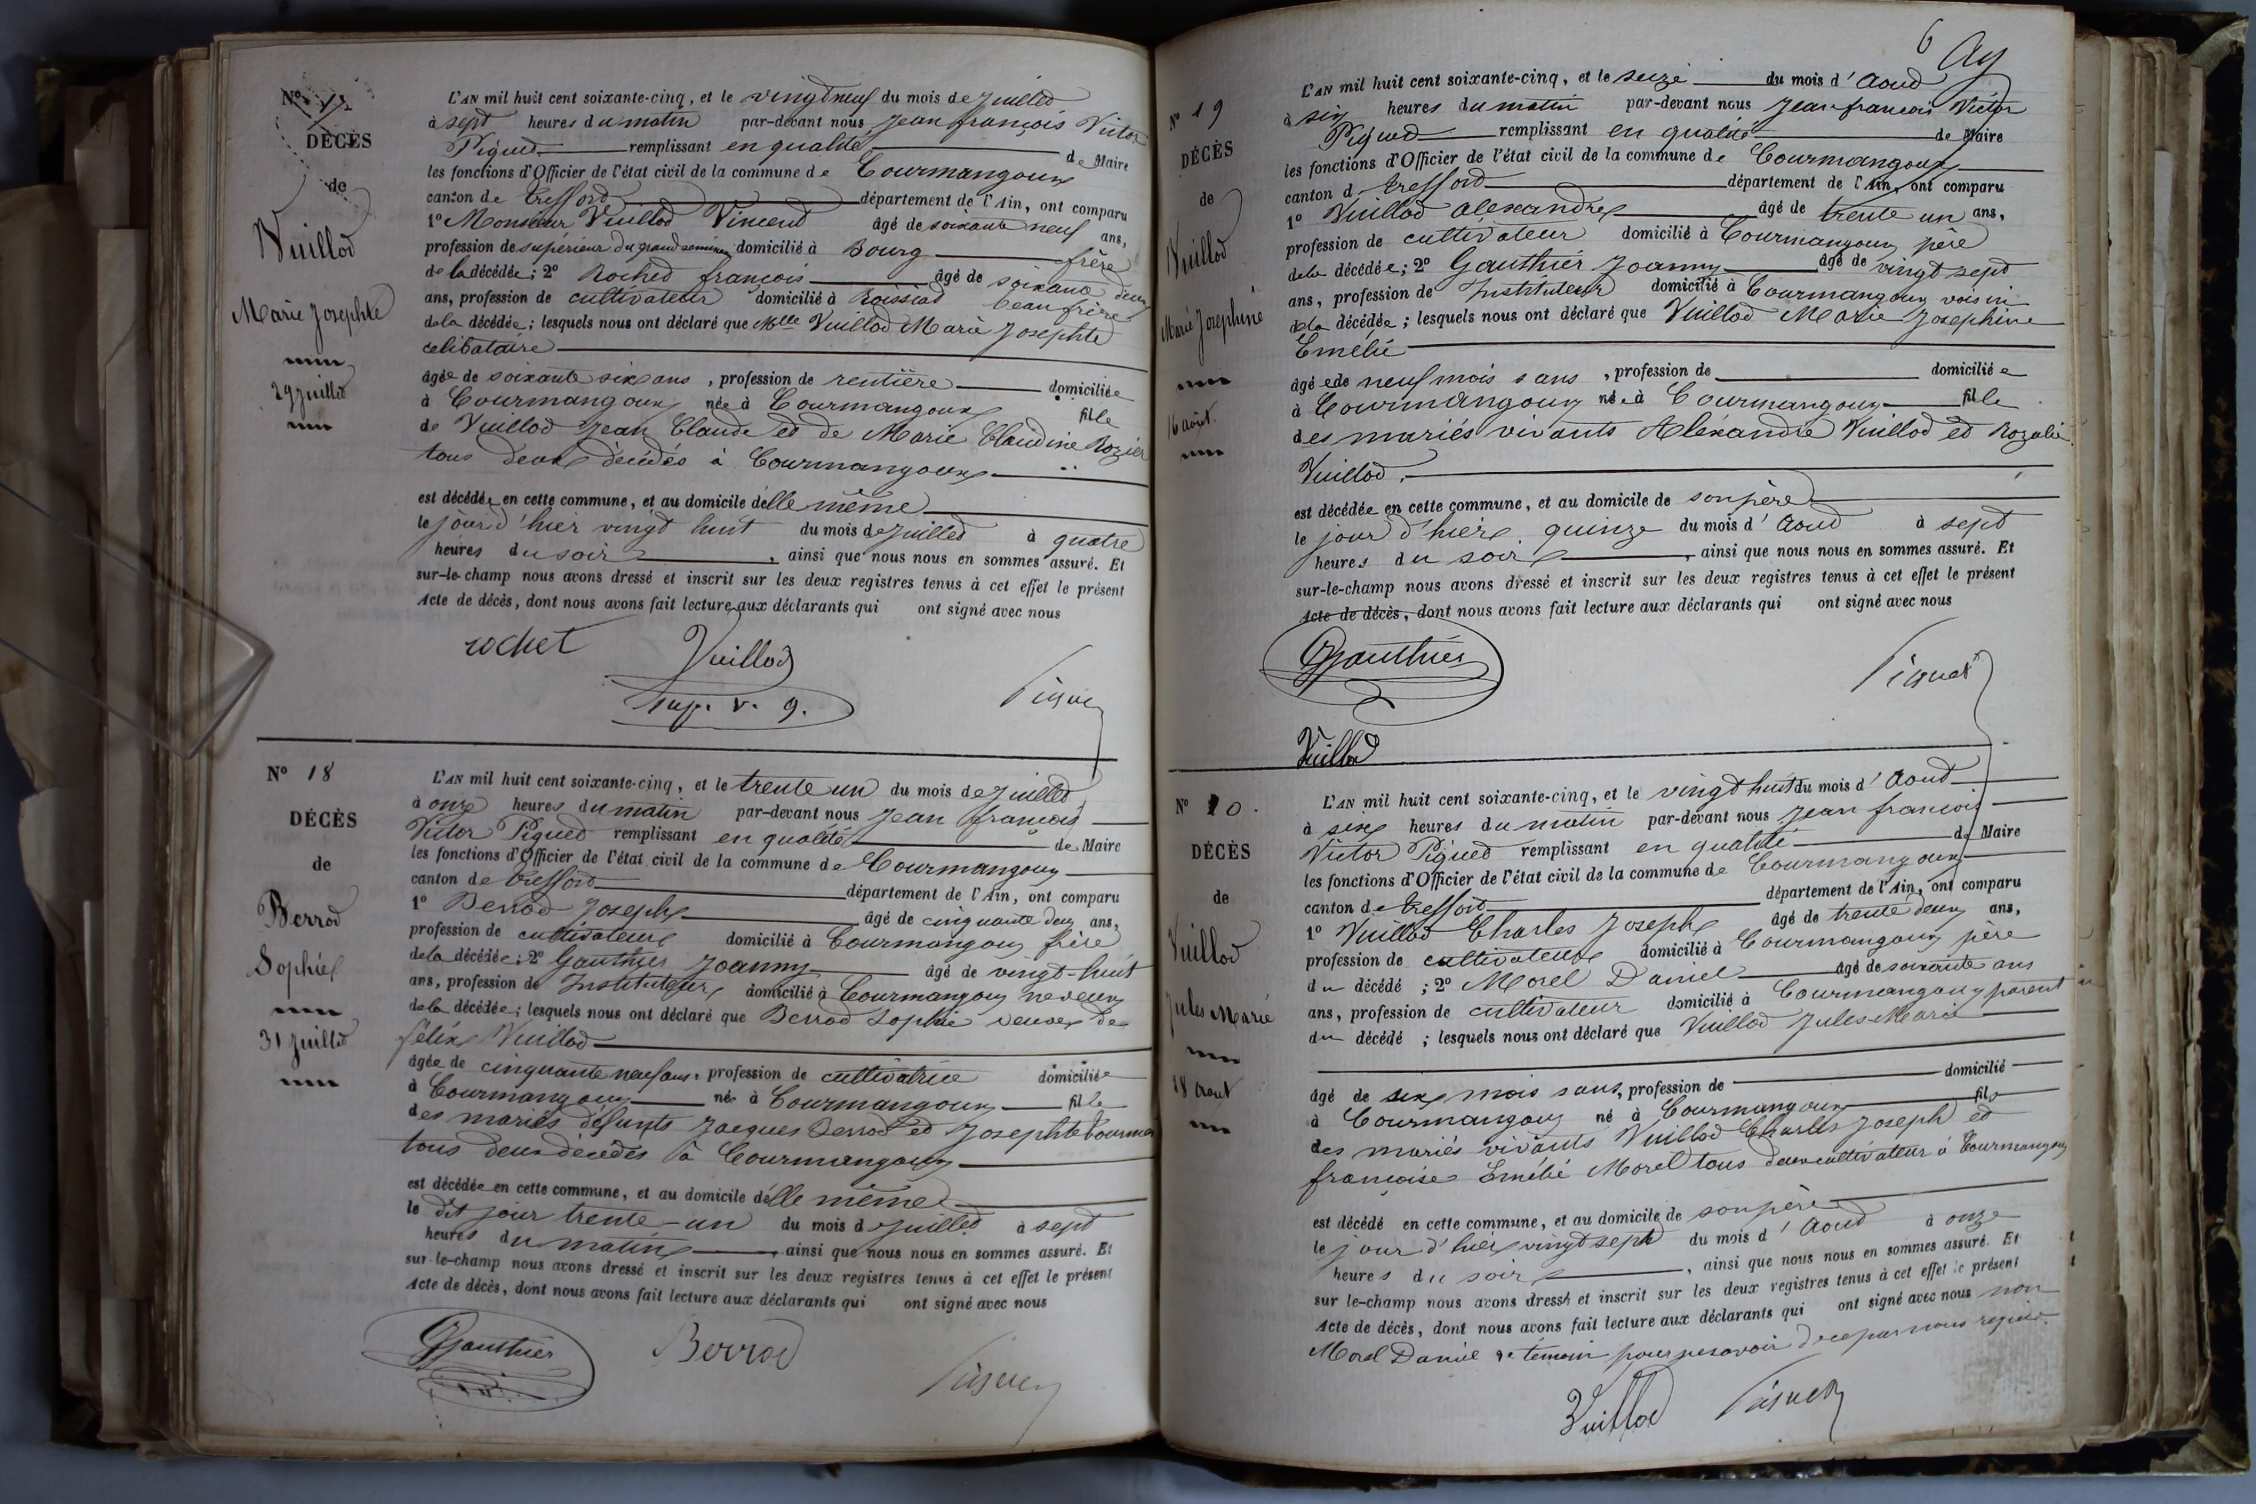 Nº 17
DÉCÈS
de
Vuillod
Marie Josephte
29 Juillet
L'AN mil huit cent soixante-cinq, et le vingt neuf du mois de Juillet
à sept heures du matin par-devant nous Jean françois Victor
Piquet remplissant en qualité de Maire
les fonctions d'Officier de l'état civil de la commune de Courmangoux
canton de Treffort département de l'Ain, ont comparu
1º Monsieur Vuillod Vincent âgé de soixante neuf ans,
profession de supérieur du grand seminaire domicilié à Bourg frère
de la décédée; 2º Rochet françois âgé de soixante deux
ans, profession de cultivateur domicilié à Roissiat beau frère
de la décédée; lesquels nous ont déclaré que Mlle Vuillod Marie Josephte
celibataire
âgée de soixante six ans, profession de rentière domiciliée
à Courmangoux née à Courmangoux fille
de Vuillod Jean Claude et de Marie Claudine Rozier
tous deux décédés à Courmangoux
est décédée en cette commune, et au domicile d'elle même
le jour d'hier vingt huit du mois de Juillet à quatre
heures du soir, ainsi que nous nous en sommes assuré. Et
sur-le-champ nous avons dressé et inscrit sur les deux registres tenus à cet effet le présent
Acte de décès, dont nous avons fait lecture aux déclarants qui ont signé avec nous
rochet Vuillod
sup. v. g. Piquet
Nº 18
DÉCÈS
de
Berrod
Sophie
31 Juillet
L'AN mil huit cent soixante-cinq, et le trente un du mois de Juillet
à onze heures du matin par-devant nous Jean françois
Victor Piquet remplissant en qualité de Maire
les fonctions d'Officier de l'état civil de la commune de Courmangoux
canton de Treffort département de l'Ain, ont comparu
1º Berrod Joseph âgé de cinquante deux ans,
profession de cultivateur domicilié à Courmangoux frère
de la décédée; 2º Gauthier Joanny âgé de vingt-huit
ans, profession de Instituteur domicilié à Courmangoux neveux
de la décédée; lesquels nous ont déclaré que Berrod Sophie veuve de
félix Vuillod
âgée de cinquante neuf ans, profession de cultivatrice domiciliée
à Courmangoux née à Courmangoux fille
des mariés défunts Jacques Berrod et Josephte
tous deux décédés à Courmangoux
est décédée en cette commune, et au domicile d'elle même
le dit jour trente-un du mois de Juillet à sept
heures du matin, ainsi que nous nous en sommes assuré. Et
sur-le-champ nous avons dressé et inscrit sur les deux registres tenus à cet effet le présent
Acte de décès, dont nous avons fait lecture aux déclarants qui ont signé avec nous
Gauthier Berrod Piquet
6
Nº 19
DÉCÈS
de
Vuillod
Marie Josephine
16 août
L'AN mil huit cent soixante-cinq, et le seize du mois d'Aout
à six heures du matin par-devant nous Jean francois Victor
Piquet remplissant en qualité de Maire
les fonctions d'Officier de l'état civil de la commune de Courmangoux
canton de Treffort département de l'Ain, ont comparu
1º Vuillod Alexandre âgé de trente un ans,
profession de cultivateur domicilié à Courmangoux père
de la décédée; 2º Gauthier Joanny âgé de vingt sept
ans, profession de Instituteur domicilié à Courmangoux voisin
de la décédée; lesquels nous ont déclaré que Vuillod Marie Josephine
Emélie
âgée de neuf mois sans, profession de domiciliée
à Courmangoux née à Courmangoux fille
des mariés vivants Aléxandre Vuillod et Rozalie
Vuillod.
est décédée en cette commune, et au domicile de son père
le jour d'hier quinze du mois d'Aout à sept
heures du soir, ainsi que nous nous en sommes assuré. Et
sur-le-champ nous avons dressé et inscrit sur les deux registres tenus à cet effet le présent
Acte de décès, dont nous avons fait lecture aux déclarants qui ont signé avec nous
Gauthier Piquet
Vuillod
Nº 20.
DÉCÈS
de
Vuillod
Jules Marie
28 Aout
L'AN mil huit cent soixante-cinq, et le vingt huit du mois d'Aout
à six heures du matin par-devant nous Jean francois
Victor Piquet remplissant en qualité de Maire
les fonctions d'Officier de l'état civil de la commune de Courmangoux
canton de Treffort département de l'Ain, ont comparu
1º Vuillod Charles Joseph âgé de trente deux ans,
profession de cultivateur domicilié à Courmangoux père
du décédé; 2º Morel Daniel âgé de soixante ans
ans, profession de cultivateur domicilié à Courmangoux parent
du décédé; lesquels nous ont déclaré que Vuillod Jules Marie
domicilié
âgé de six mois sans, profession de
à Courmangoux né à Courmangoux fils
des mariés vivants Vuillod Charles Joseph et
françoise Emélie Morel tous deux cultivateur à Courmangoux
est décédé en cette commune, et au domicile de son père
le jour d'hier vingt sept du mois d'Aout à onze
heures du soir, ainsi que nous nous en sommes assuré. Et
sur-le-champ nous avons dressé et inscrit sur les deux registres tenus à cet effet le présent
Acte de décès, dont nous avons fait lecture aux déclarants qui ont signé avec nous non
Morel Daniel 2e témoin pour ne savoir de ce par nous requis.
Vuillod Piquet